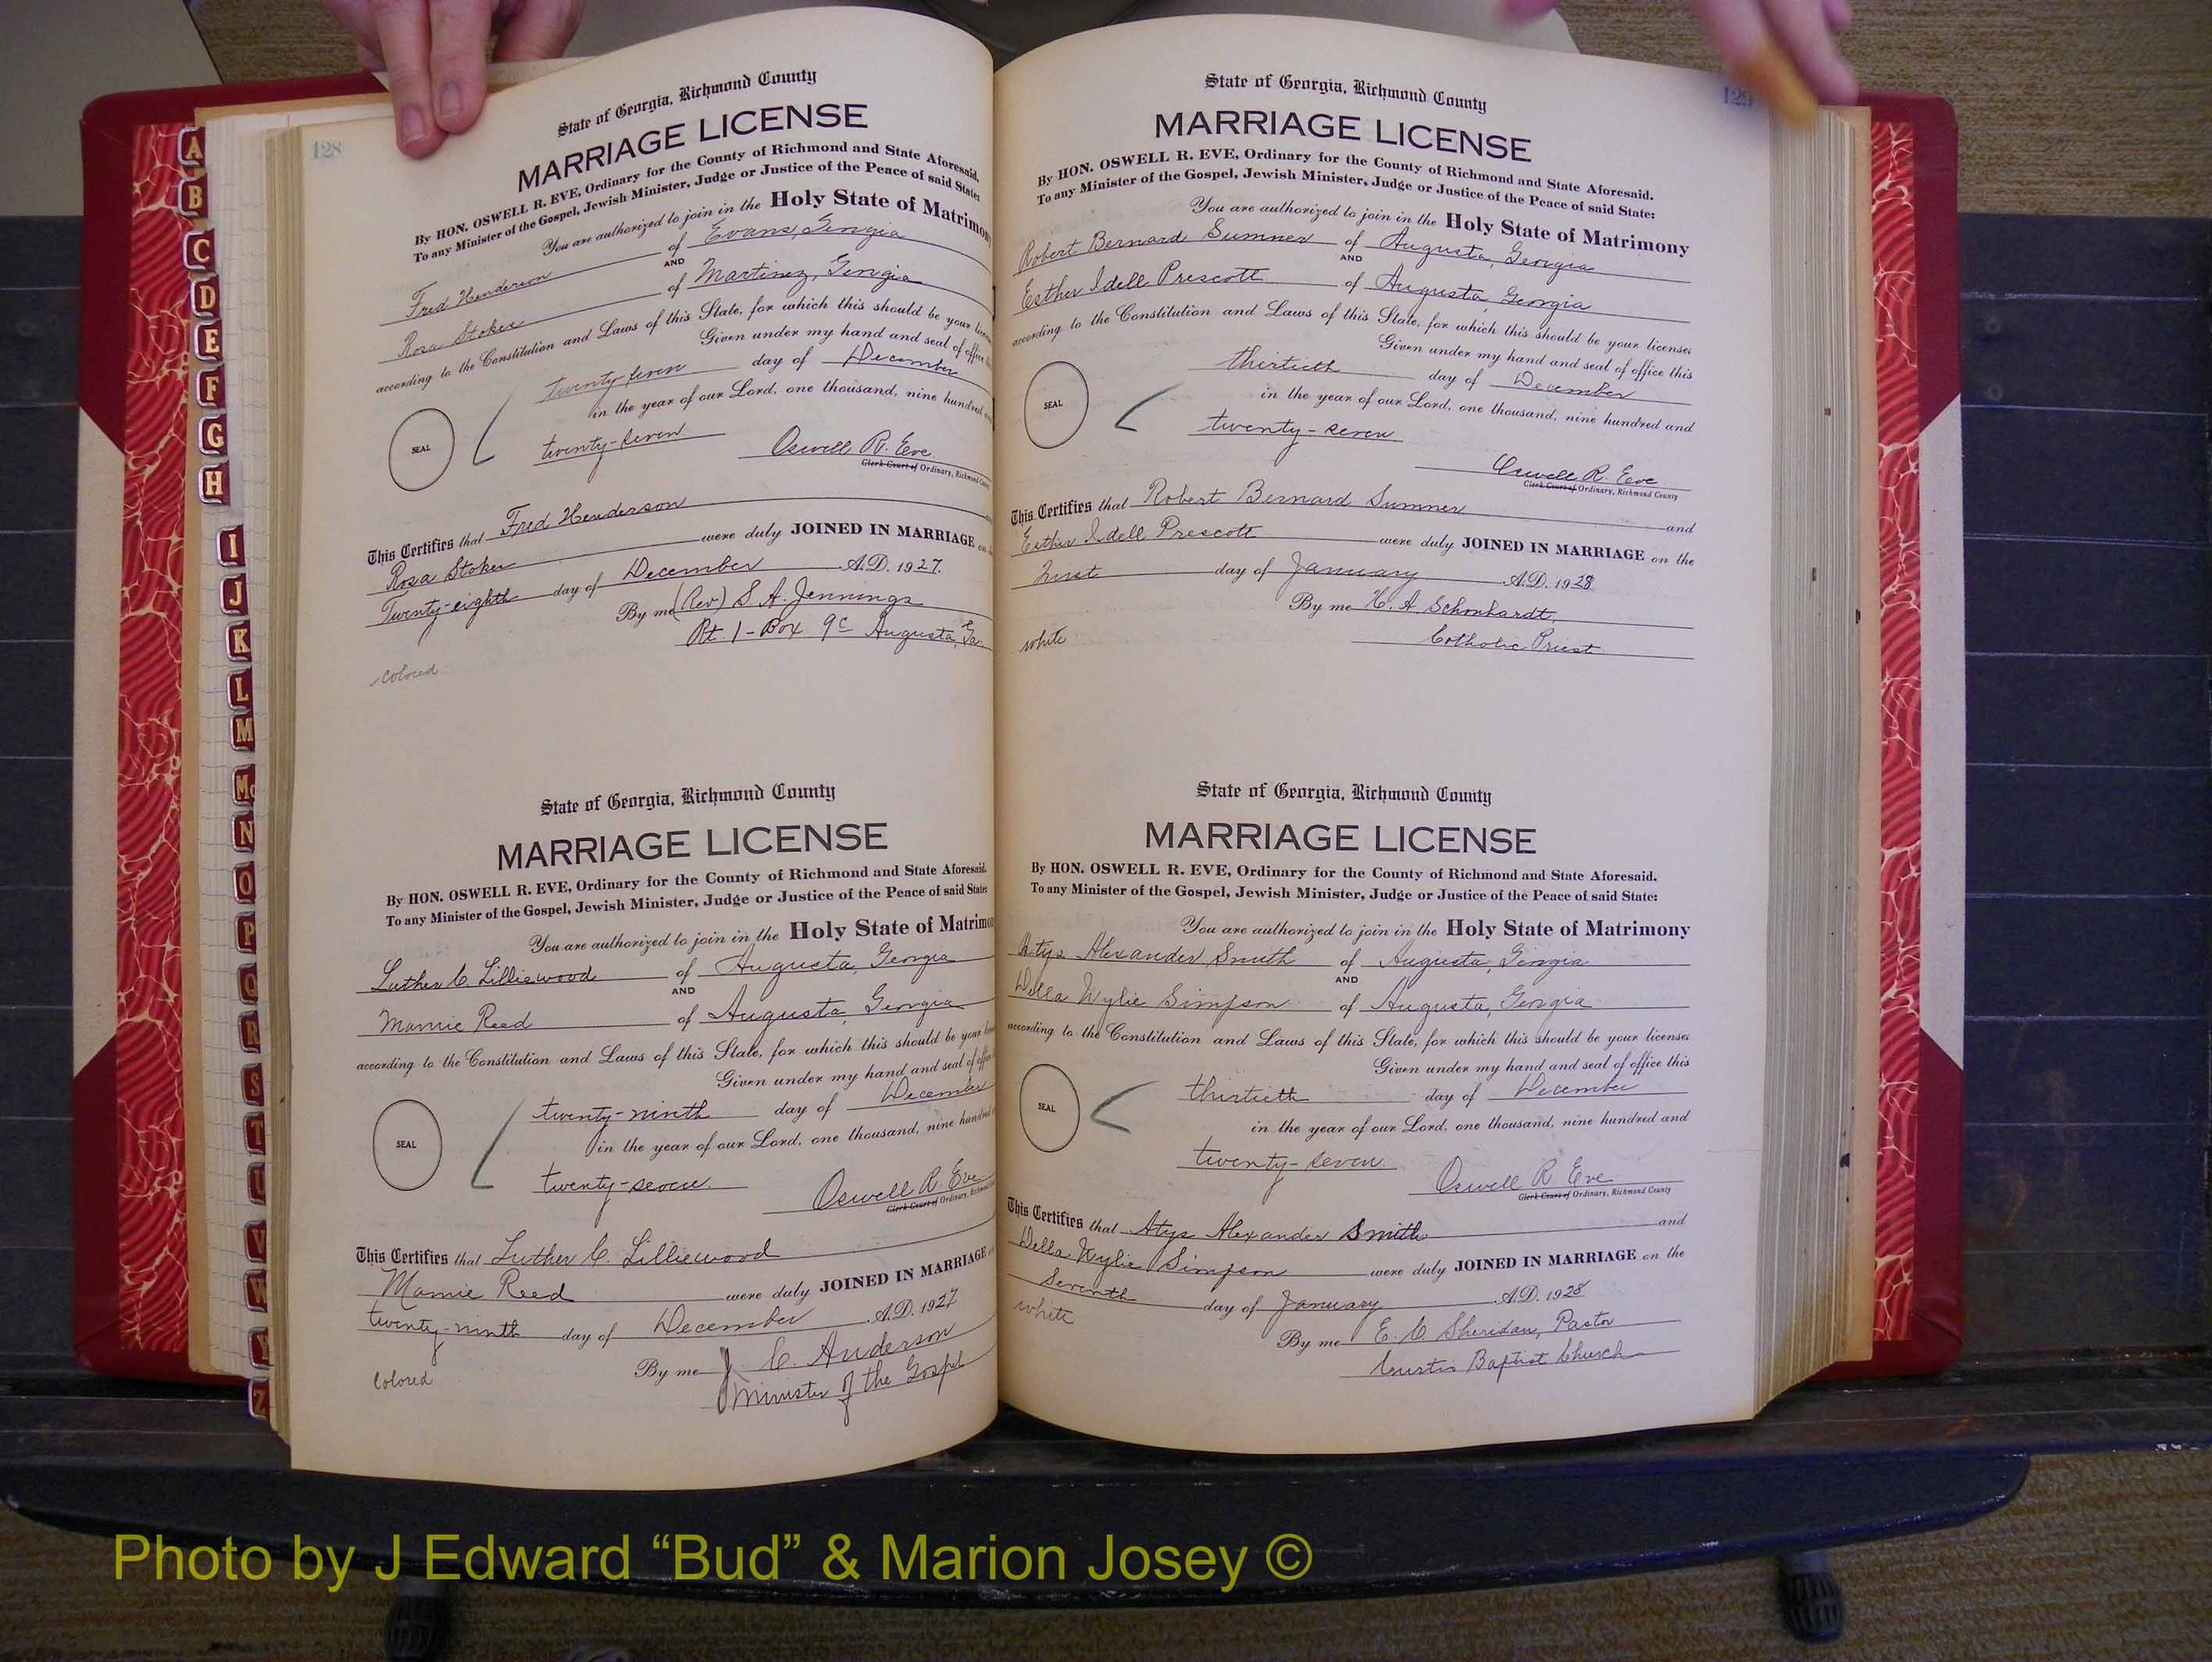 128
State of Georgia, Richmond County
MARRIAGE LICENSE
By HON. OSWELL R. EVE, Ordinary for the County of Richmond and State Aforesaid.
To any Minister of the Gospel, Jewish Minister, Judge or Justice of the Peace of said State:
You are authorized to join in the Holy State of Matrimony
Fred Henderson of Evans, Georgia
AND
Rosa Stoker of Martinez, Georgia
according to the Constitution and Laws of this State, for which this should be your
Given under my hand and seal of office
twenty seven day of December
in the year of our Lord, one thousand, nine hundred
SEAL
twenty-seven
Oswell R. Eve
Clerk Court of Ordinary, Richmond County
This Certifies that Fred Henderson
Rosa Stoker were duly JOINED IN MARRIAGE on
Twenty-eighth day of December A.D. 1927.
By me (Rev) S. A. Jennings
Rt. 1 - Box 9c Augusta, Ga.
colored
State of Georgia, Richmond County
MARRIAGE LICENSE
By HON. OSWELL R. EVE, Ordinary for the County of Richmond and State Aforesaid.
To any Minister of the Gospel, Jewish Minister, Judge or Justice of the Peace of said State:
You are authorized to join in the Holy State of Matrimony
Luther C. Lilliewood of Augusta, Georgia
AND
Mamie Reed of Augusta, Georgia
according to the Constitution and Laws of this State, for which this should be your
Given under my hand and seal of
twenty-ninth day of December
in the year of our Lord, one thousand, nine hundred
SEAL
twenty-seven.
Oswell R. Eve
Clerk Court of Ordinary, Richmond
This Certifies that Luther C. Lilliewood
Mamie Reed were duly JOINED IN MARRIAGE
twenty-ninth day of December A.D. 1927
By me J. C. Anderson
Minister of the Gospel
Colored
129
State of Georgia, Richmond County
MARRIAGE LICENSE
By HON. OSWELL R. EVE, Ordinary for the County of Richmond and State Aforesaid.
To any Minister of the Gospel, Jewish Minister, Judge or Justice of the Peace of said State:
You are authorized to join in the Holy State of Matrimony
Robert Bernard Sumner of Augusta, Georgia
AND
Esther Idell Prescott of Augusta, Georgia
according to the Constitution and Laws of this State, for which this should be your license:
Given under my hand and seal of office this
thirtieth day of December
in the year of our Lord, one thousand, nine hundred and
SEAL
twenty-seven.
Oswell R. Eve
Clerk Court of Ordinary, Richmond County
This Certifies that Robert Bernard Sumner and
Esther Idell Prescott were duly JOINED IN MARRIAGE on the
First day of January A.D. 1928
By me H. A. Schonhardt,
Catholic Priest
white
State of Georgia, Richmond County
MARRIAGE LICENSE
By HON. OSWELL R. EVE, Ordinary for the County of Richmond and State Aforesaid.
To any Minister of the Gospel, Jewish Minister, Judge or Justice of the Peace of said State:
You are authorized to join in the Holy State of Matrimony
Atys Alexander Smith of Augusta, Georgia
AND
Della Wylie Simpson of Augusta, Georgia
according to the Constitution and Laws of this State, for which this should be your license:
Given under my hand and seal of office this
thirtieth day of December
in the year of our Lord, one thousand, nine hundred and
SEAL
twenty-seven.
Oswell R. Eve
Clerk Court of Ordinary, Richmond County
This Certifies that Atys Alexander Smith and
Della Wylie Simpson were duly JOINED IN MARRIAGE on the
Seventh day of January A.D. 1928
white
By me E. C. Sheridan, Pastor
Curtis Baptist Church
A
B
C
D
E
F
G
H
I
J
K
L
M
Mc
N
O
P
Q
R
S
T
U
V
W
Y
Z
Photo by J Edward “Bud” & Marion Josey ©